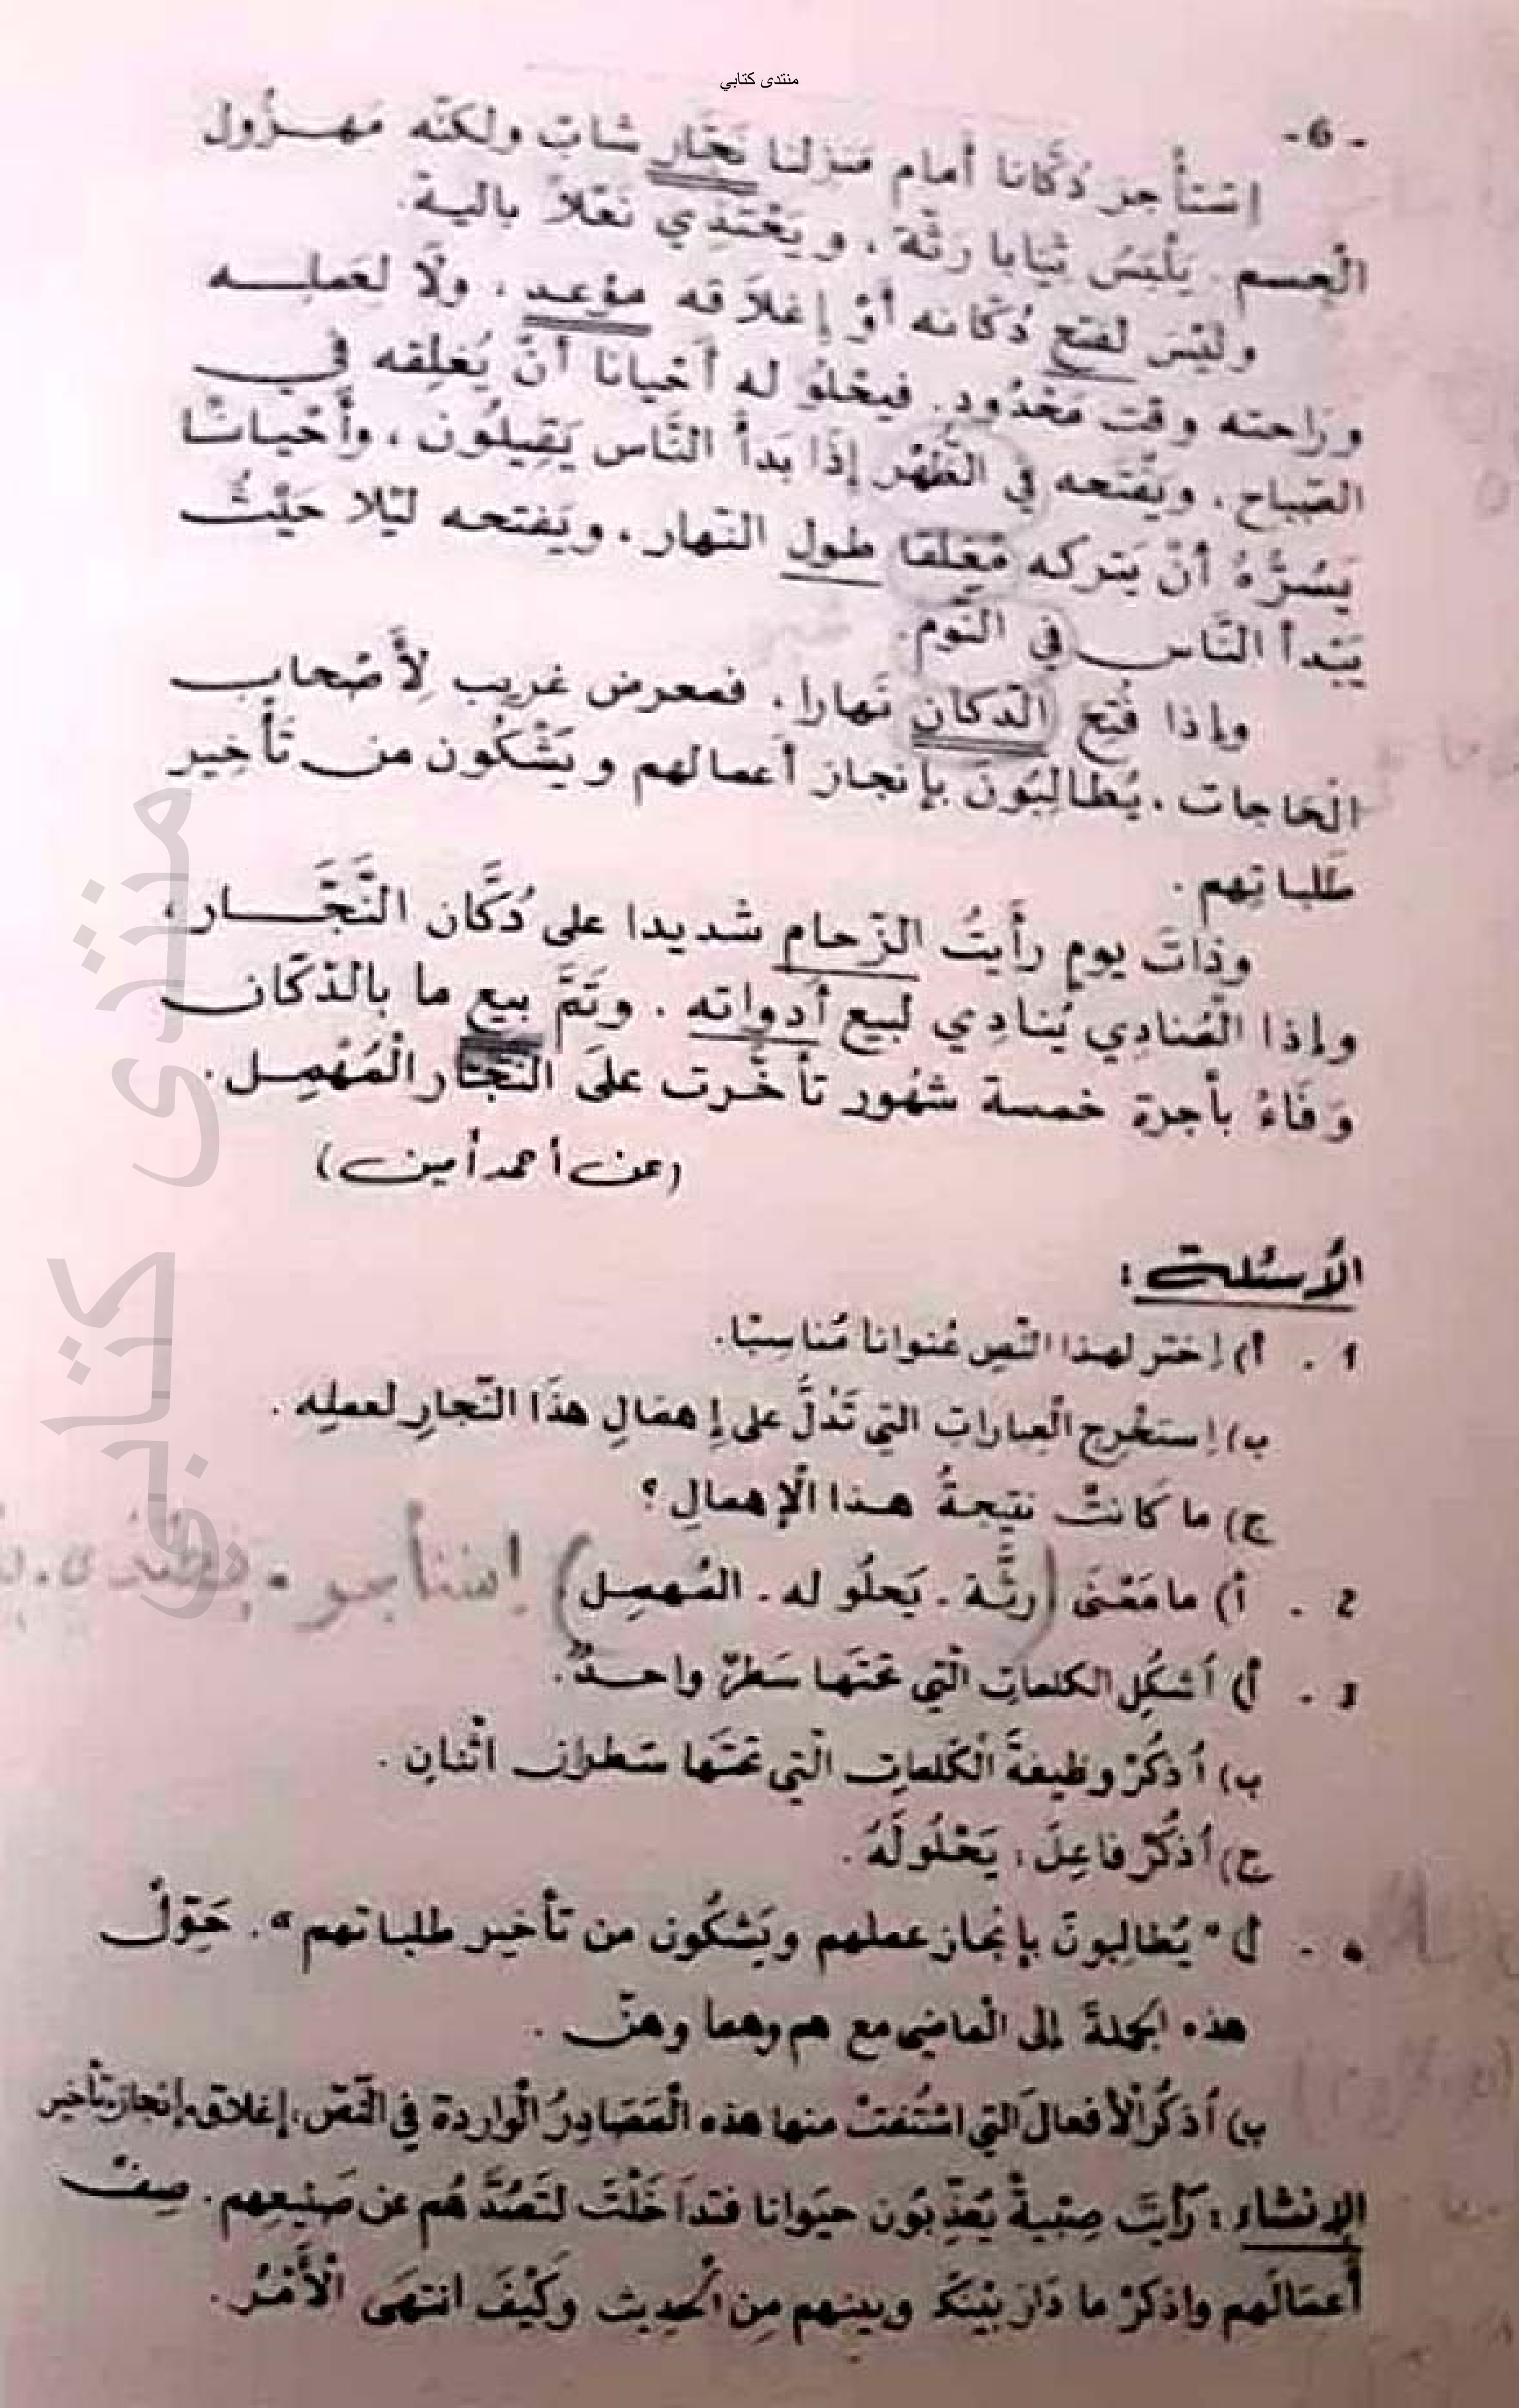 منتدى كتابي
- 6 -
اِسْتَأْجر دُكَّانا أمام منزلنا نَجَّار شابّ ولكنّه مَهـزُول
الْجسم . يَلْبَسُ ثيَابا رَثَّة ، و يَحْتَذِي نَعْلا بالية .
وليْسَ لفتح دُكّانه أوْ إغلاقه موْعد ، ولَا لعَملـه
وراحته وقْت مَحْدُود . فيحْلُو له أحْيانا أنْ يُغلِقه في
الصّباح ، ويَفْتحه في الظّهْر إذَا بَدأ النَّاس يَقِيلُون ، وأَحْيانًا
يَسُرُّهُ أنْ يَتركه مُغلقا طول النّهار ، ويَفتحه ليْلا حَيْثُ
يَبْدأ النَّاس في النّوم .
وإذا فُتِح الدّكان نَهارا ، فمعرض غريب لِأَصْحاب
الْحَاجات ، يُطالِبُونَ بإنجاز أعمالهم ويَشْكُون من تَأْخِير
طَلباتِهم .
وذات يوم رأَيتُ الزّحام شديدا على دُكَّان النَّجَّـار ،
وإذا الْمُنادِي يُنادِي لبيع أدواته . وتَمَّ بيع ما بالدّكّان
وَفَاءً بأجرة خمسة شهُور تأخّرت علَى النّجّار الْمُهْمِل .
(عن أحمد أمين)
الأسئلة :
1 . أ) إختر لهذا النّصِ عُنوانا مُناسِبًا .
ب) إستخْرِج الْعِبارات التي تَدُلُّ على إهمَالِ هذَا النّجارِ لعملِه .
ج) ما كَانتْ نتيجةُ هـذا الْإهمالِ ؟
2 . أ) ما مَعْنَى (رثَّة . يَحلُو له . المُهمِل) إستأجر .
3 . أ) اُشكُلِ الكلماتِ الّتي تحتَها سَطرٌ واحـدٌ .
ب) اُذكُرْ وظيفةَ الْكَلماتِ الّتي تحتَها سَطران اثْنانِ .
ج) اُذكُرْ فاعِلَ : يَحْلُو لَهُ .
4 . أ) " يُطالِبونَ بإنجاز عملهم ويَشكُون من تأخير طلباتهم " . حَوّلْ
هذه الجملةَ إلى الْماضِي مع هم وهما وهنّ .
ب) اُذكُرْ الْأفعالَ التي اشتُقتْ منها هذه الْمَصَادِرُ الْواردة في النّصّ : إغلاق . إنجاز . تأخير
الإنشاء : رَأيْتَ صِبْيةً يُعذِّبُون حيَوانا فتدَاخَلْتَ لتَصُدَّهُم عن صَنيعِهم . صِفْ
أعمَالَهم واذكرْ ما دَارَ بيْنَكَ وبينهم مِن الْحَدِيث وكَيْفَ انتهَى الْأَمْرُ .
منتدى كتابي